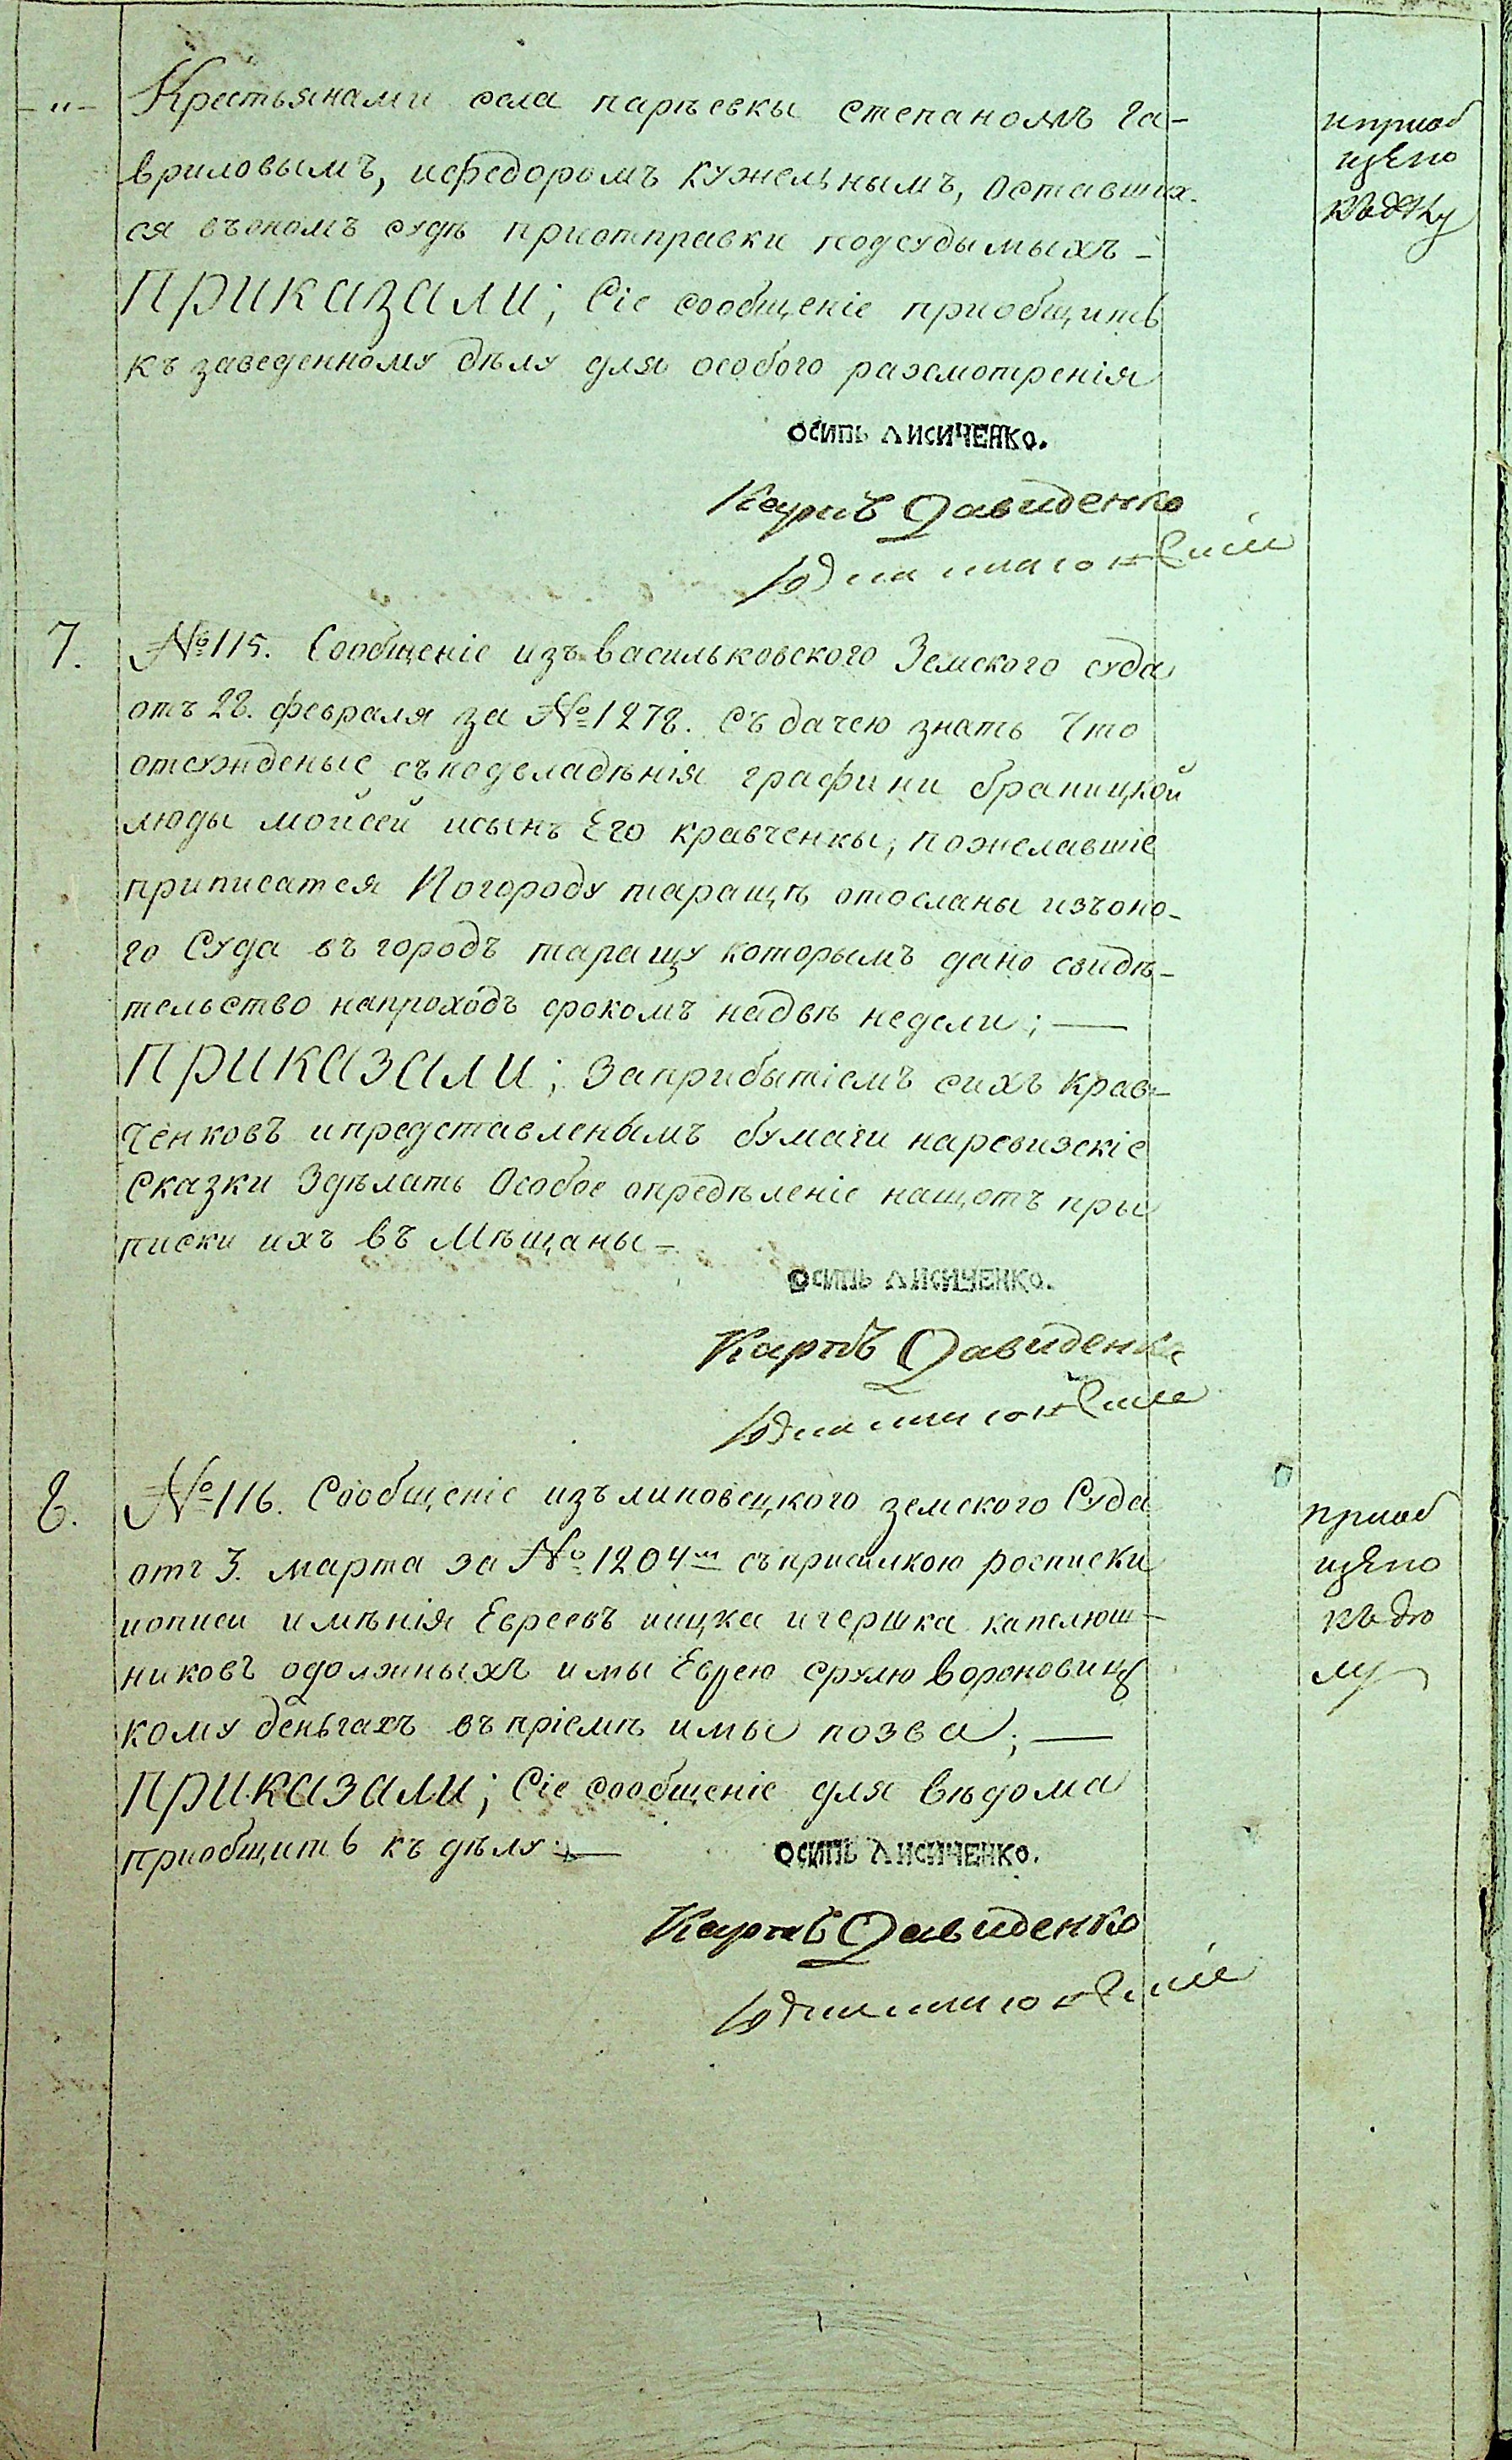 -"- Крестьянами села паріевки степаномъ га-
вриловымъ, ифедоромъ кужельнымъ, Оставших-
ся въономъ судѣ приотправки подсудымыхъ -
ПРИКАЗАЛИ; Сіе сообщеніе приобщить
къ заведенному дѣлу для особого разсмотренія
иприоб
щѣно
къдѣлу
ОСИПЬ ЛИСИЧЕНКО.
Карпъ Давиденко
7. №115. Сообщеніе изъ васильковского Земского суда
отъ 28. февраля за №1278. Съ дачею знать Что
отсужденые съподвладѣнія графини браницкой
люды мойсей исынъ Его кравченкы, пожелавшіе
приписатся Когороду таращѣ отосланы изъоно-
го Суда въ городъ таращу которымъ дано свидѣ-
тельство напроходъ срокомъ надвѣ недели; —
ПРИКАЗАЛИ; Заприбытіемъ сихъ Крав-
ченковъ ипредставленымъ бумаги наревизскіе
Сказки Здѣлать Особое опредѣленіе нащотъ при
писки ихъ въ Мѣщаны -
ОСИПЬ ЛИСИЧЕНКО.
Карпъ Давиденко
8. №116. Сообщеніе изъ липовецкого земского Суда
отъ 3. марта за №1204м съприсилкою росписки
иописи имѣнія Евреевъ ицка игершка капелюш-
никовъ одолжныхъ имы Еврею срулю вороновиц
кому деньгахъ въпріемѣ имы позва; —
ПРИКАЗАЛИ; Сіе сообщеніе для вѣдома
приобщить къ дѣлу; —
приоб
щѣно
къ дѣ
лу
ОСИПЬ ЛИСИЧЕНКО.
Карпъ Давиденко